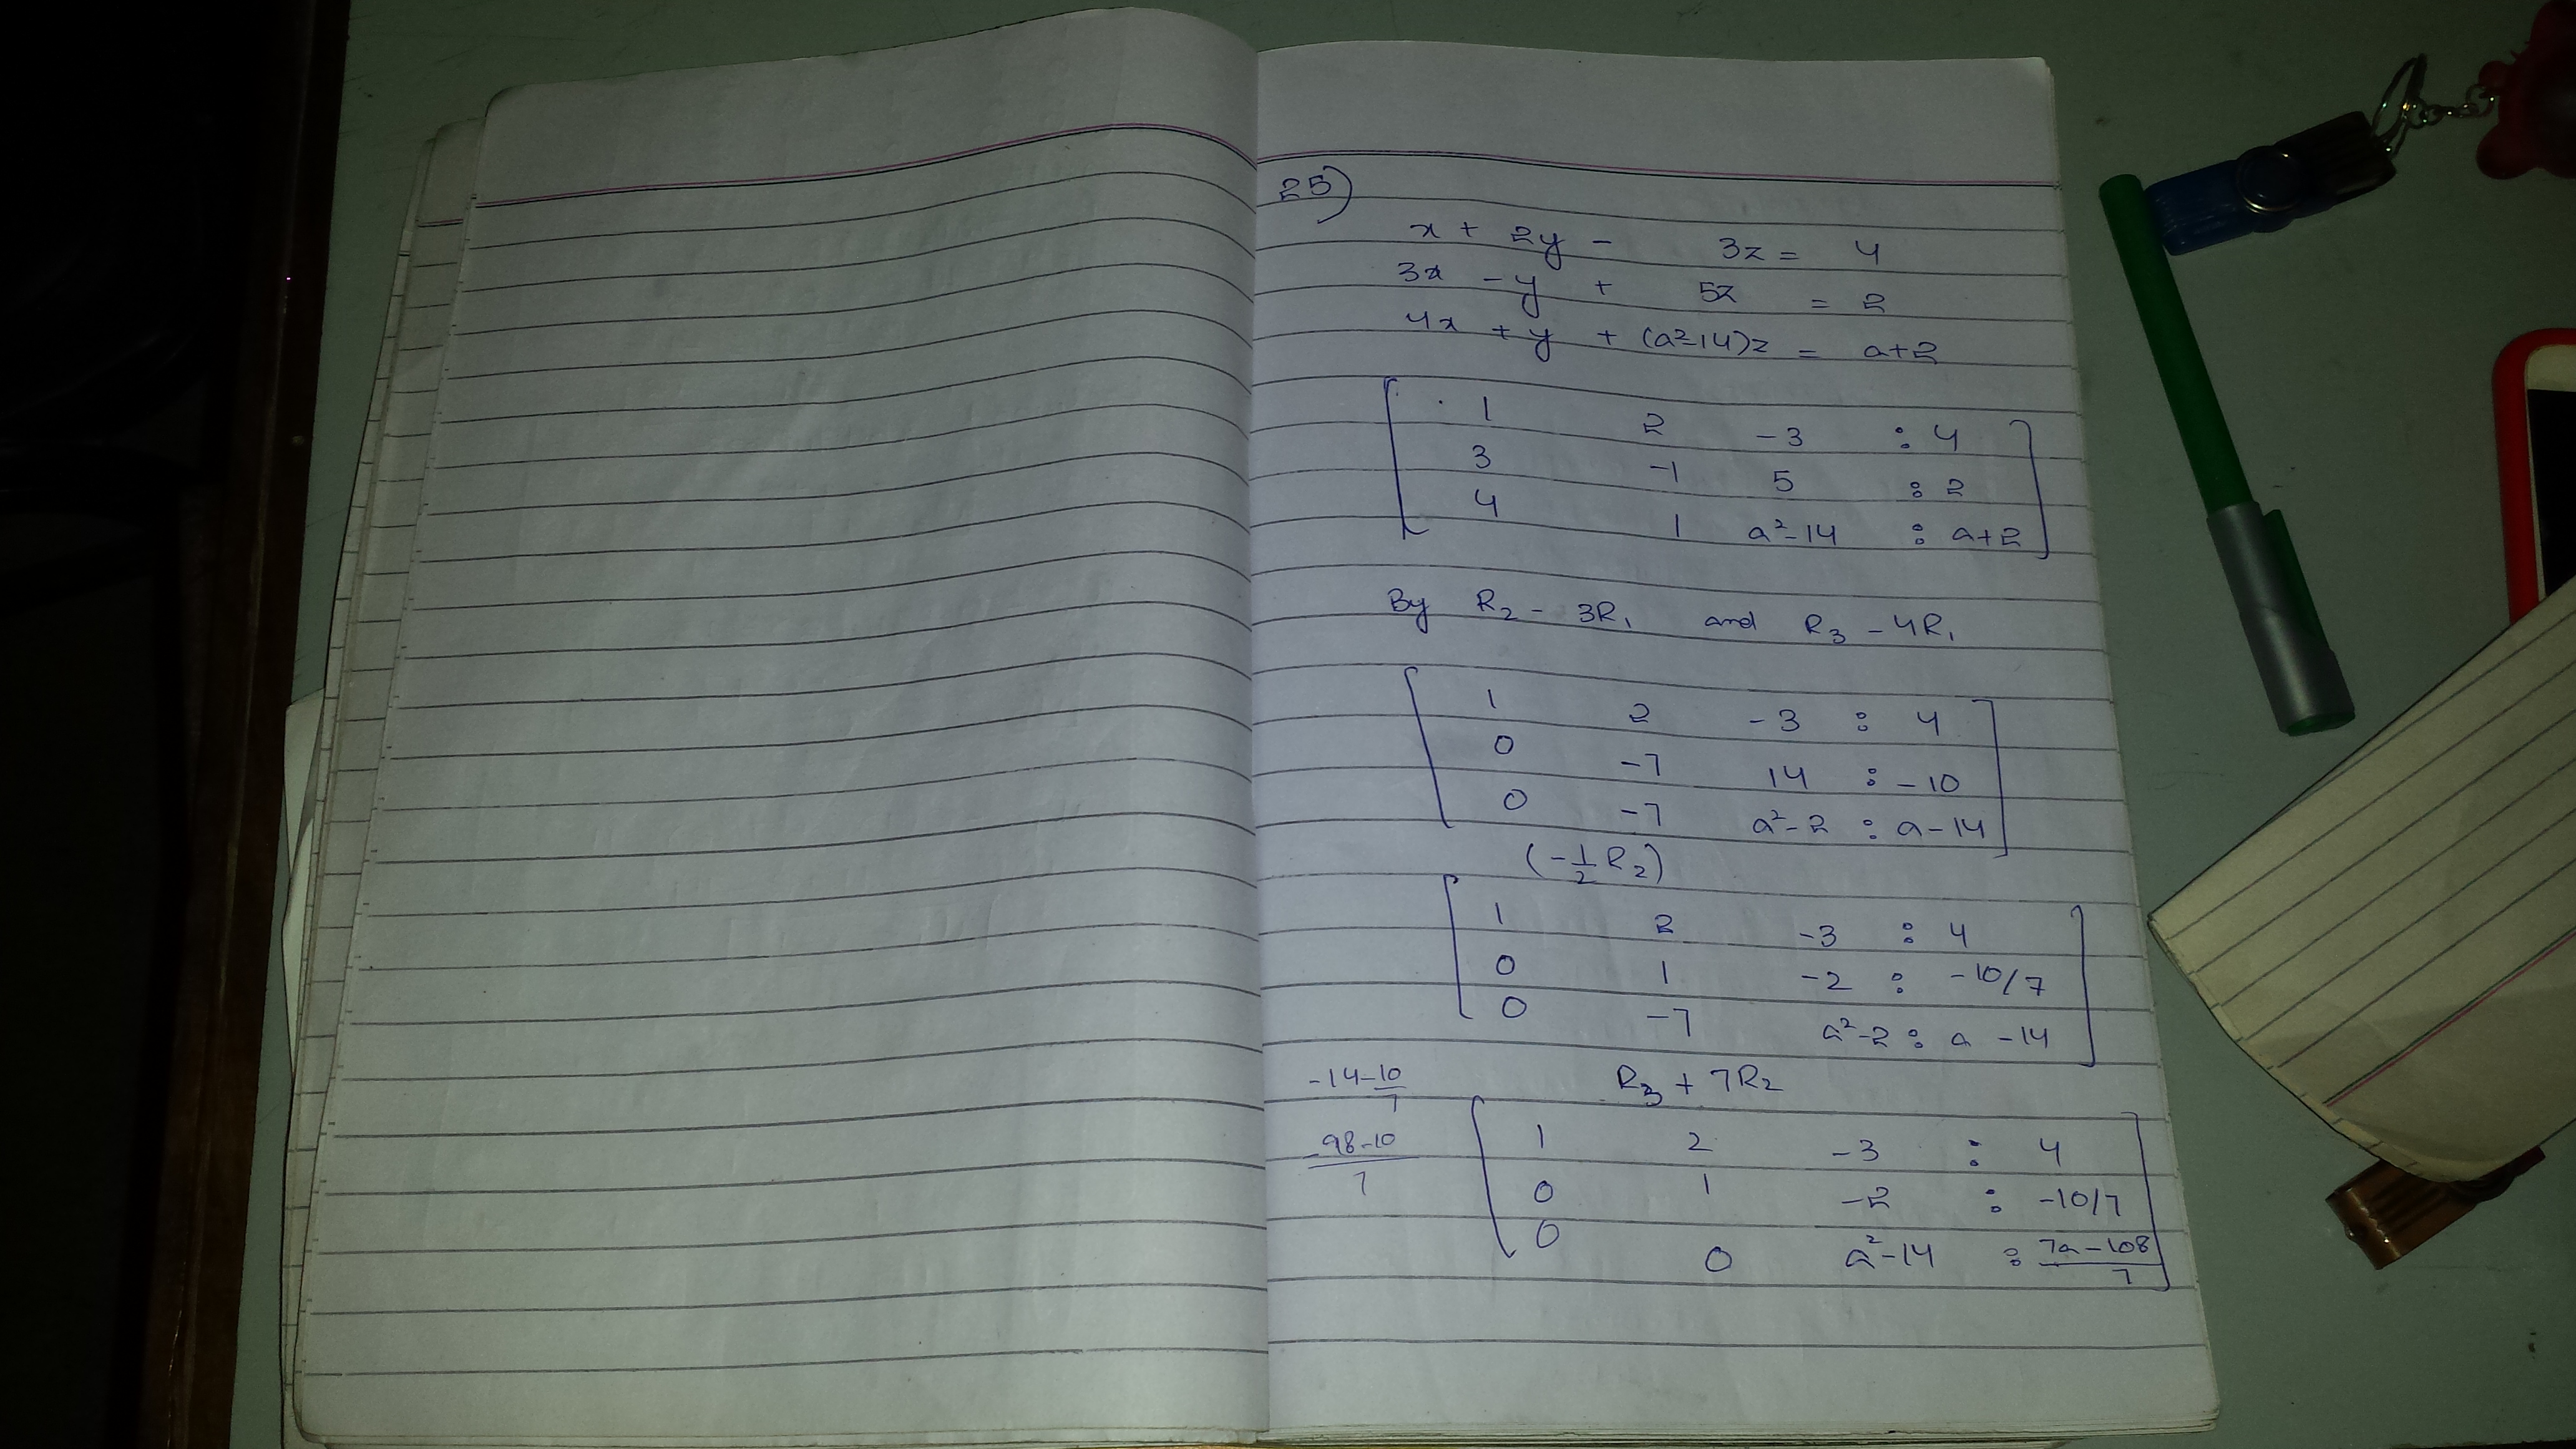 25)
x + 2y - 3z = 4
3x - y + 5z = 2
4x + y + (a²-14)z = a+2
1 2 -3 : 4
3 -1 5 : 2
4 1 a²-14 : a+2
By R₂ - 3R₁ and R₃ - 4R₁
1 2 -3 : 4
0 -7 14 : -10
0 -7 a²-2 : a-14
(-1/2 R₂)
1 2 -3 : 4
0 1 -2 : -10/7
0 -7 a²-2 : a -14
R₃ + 7R₂
-14-10/7
-98-10/7
1 2 -3 : 4
0 1 -2 : -10/7
0 0 a²-14 : 7a-108/7